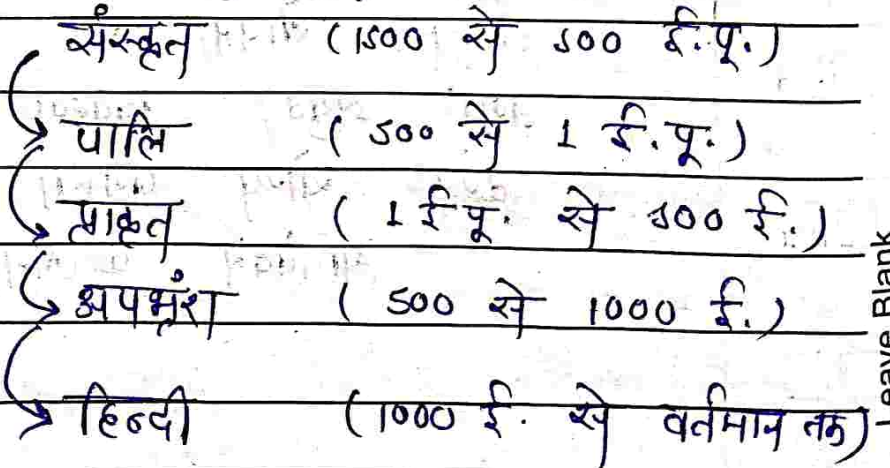 संस्कृत (1500 से 500 ई.पू.)
पालि (500 से 1 ई.पू.)
प्राकृत (1 ई पू. से 500 ई.)
अपभ्रंश (500 से 1000 ई.)
हिन्दी (1000 ई. से वर्तमान तक)
Leave Blank